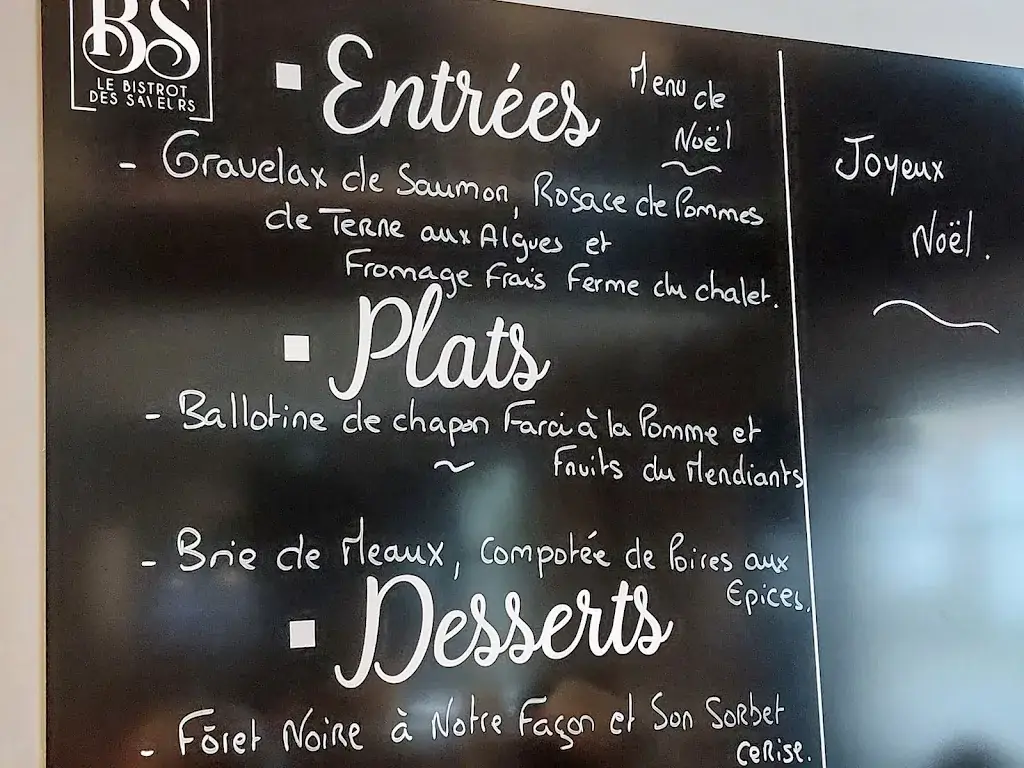 BS
LE BISTROT
DES SAVEURS
Entrées
Menu de
Noël
- Gravelax de Saumon, Rosace de Pommes
de Terre aux Algues et
Fromage Frais Ferme du chalet.
Plats
- Ballotine de chapon Farci à la Pomme et
Fruits du Mendiants
- Brie de Meaux, Compotée de Poires aux
Epices.
Desserts
- Fôret Noire à Notre Façon et Son Sorbet
Cerise.
Joyeux
Noël.